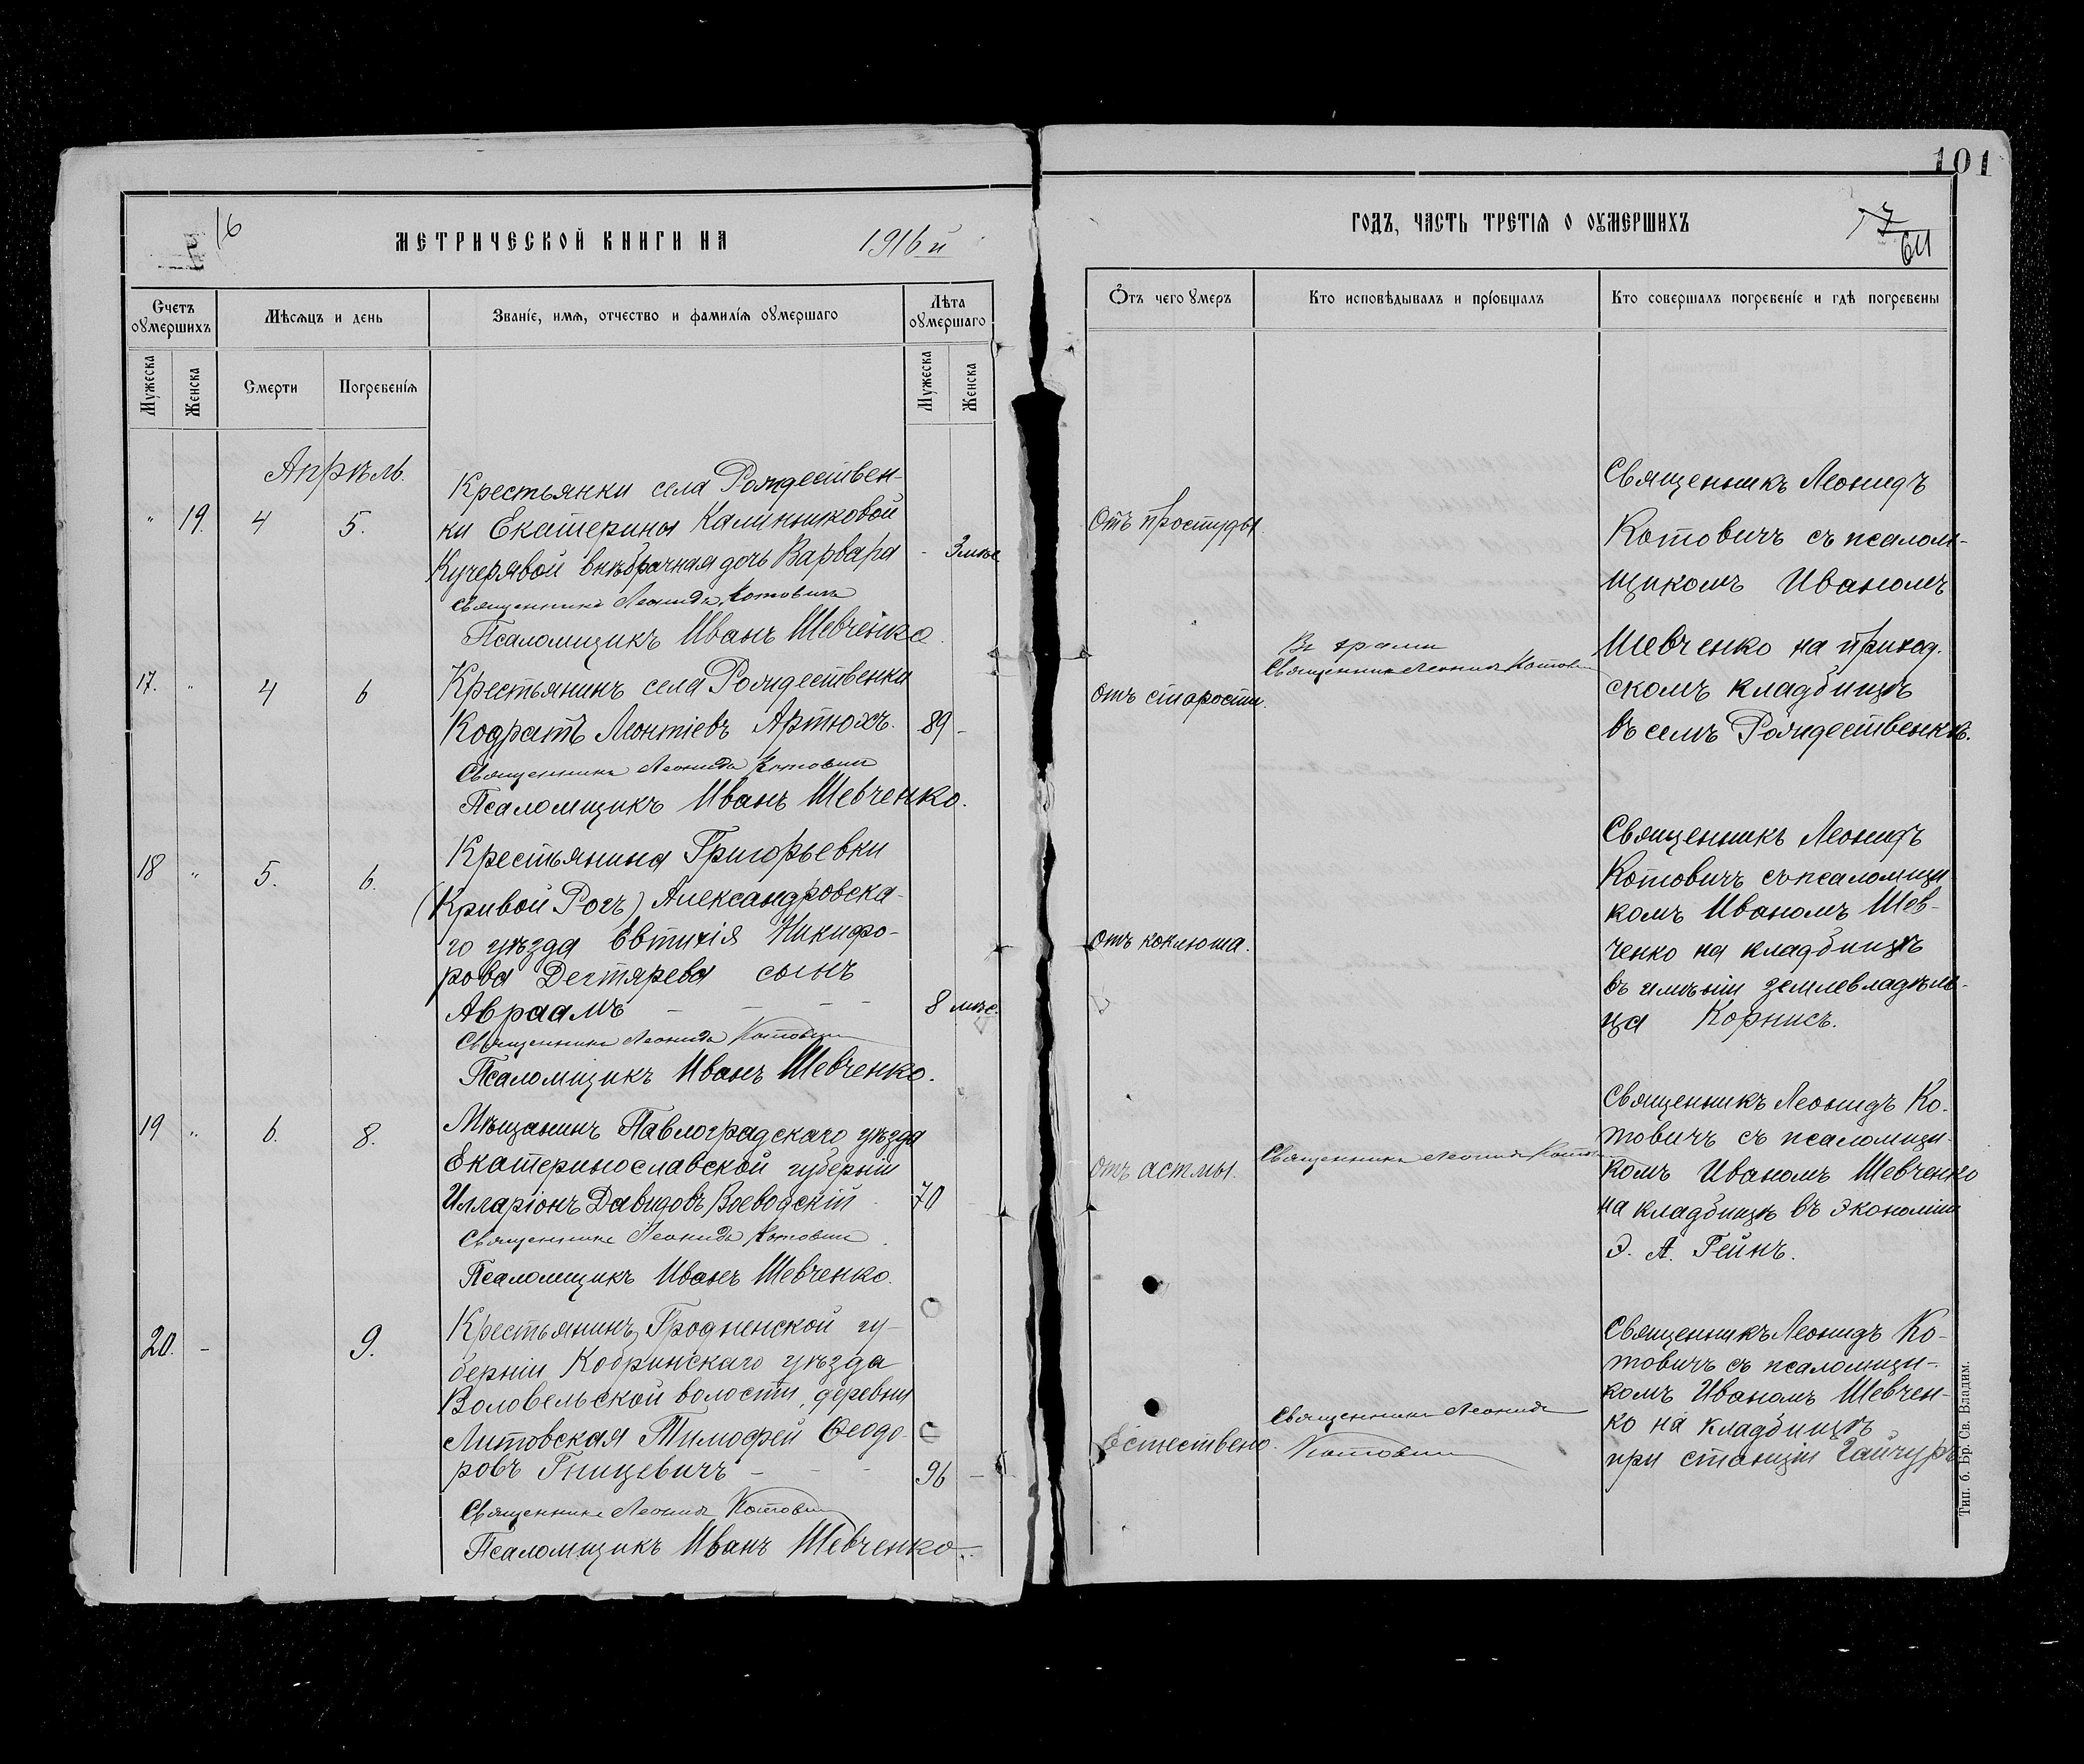 16
МЕТРИЧЕСКОЙ КНИГИ НА 1916й
Счетъ оумершихъ
Мѣсяцъ и день
Званіе, имя, отчество и фамилія оумершаго
Лѣта оумершаго
Мужеска
Женска
Смерти
Погребенія
Мужеска
Женска
Апрѣль.
" 19. 4 5.
Крестьянки села Рождествен-
ки Екатерины Калиниковой
Кучерявой внѣбрачная дочь Варвара - 3 мѣс
Священникъ Леонидъ Котовичъ
Псаломщикъ Иванъ Шевченко.
17. " 4 6
Крестьянинъ села Рождественки
Кодратъ Леонтіевъ Артюхъ. 89 -
Священникъ Леонидъ Котовичъ
Псаломщикъ Иванъ Шевченко.
18 " 5. 6.
Крестьянина Григорьевки
(Кривой Рогъ) Александровска-
го уѣзда Евтихія Никифо-
рова Дегтярева сынъ
Авраамъ - - - 8 мѣс.
Священникъ Леонидъ Котовичъ
Псаломщикъ Иванъ Шевченко.
19 " 6. 8.
Мѣщанинъ Павлоградскаго уѣзда
Екатеринославской губерніи
Илларіонъ Давидовъ Воеводскій 70
Священникъ Леонидъ Котовичъ
Псаломщикъ Иванъ Шевченко.
20. - 9.
Крестьянинъ Гродненской гу-
берніи Кобринскаго уѣзда
Воловельской волости, деревни
Литовская Тимофей Ѳеодо-
ровъ Гницевичъ - - - 96 -
Священникъ Леонидъ Котовичъ
Псаломщикъ Иванъ Шевченко.
101
ГОДЪ, ЧАСТЬ ТРЕТІЯ О ОУМЕРШИХЪ
64
Отъ чего умеръ
Кто исповѣдывалъ и пріобщалъ
Кто совершалъ погребеніе и гдѣ погребены
Отъ простуды.
Священникъ Леонидъ
Котовичъ съ псалом-
щикомъ Иваномъ
Шевченко на приход-
скомъ кладбищѣ
въ селѣ Рождественкѣ.
Священникъ Леонидъ Котовичъ
Отъ старости.
Отъ коклюша.
Священникъ Леонидъ
Котовичъ съ псаломщи
комъ Иваномъ Шев-
ченко на кладбищѣ
въ имѣніи землевладѣль-
ца Корнисъ.
Отъ астмы.
Священникъ Леонидъ Котовичъ
Священникъ Леонидъ Ко-
товичъ съ псаломщи-
комъ Иваномъ Шевченко
на кладбищѣ въ экономіи
Э. А. Гейнъ.
Естествено.
Священникъ Леонидъ
Котовичъ
Священникъ Леонидъ Ко-
товичъ съ псаломщи-
комъ Иваномъ Шевчен-
ко на кладбищѣ
при станціи Гайчуръ
Тип. б. Бр. Св. Владим.